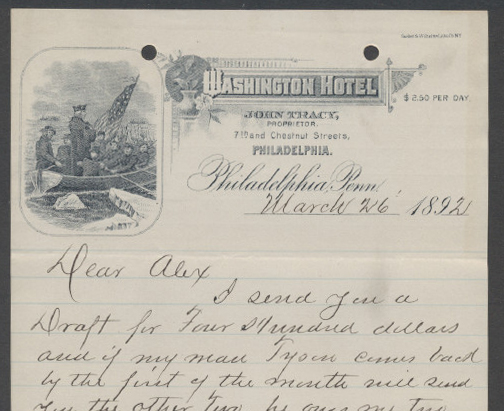 WASHINGTON HOTEL
$2.50 PER DAY.
JOHN TRACY,
PROPRIETOR.
7th and Chestnut Streets,
PHILADELPHIA.
Philadelphia, Penn.
March 26 1892
Dear Alex
I send you a
Draft for Four Hundred dollars
and if my man Tyson comes back
by the first of the month will send
you the other two he owes me two